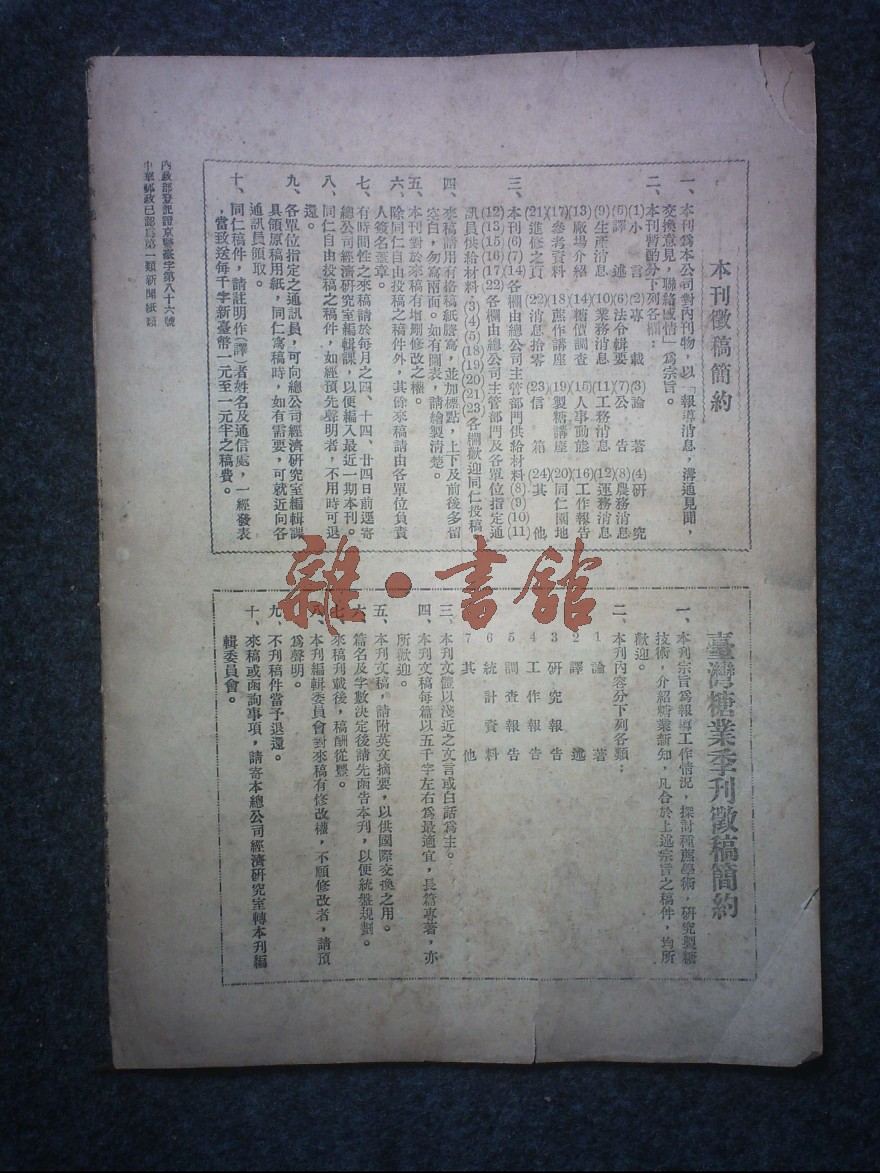 本刊徵稿簡約
一、本刊爲本公司對內刊物，以「報導消息，溝通見聞，
交換意見，聯絡感情」爲宗旨。
二、本刊暫酌分下列各欄：
(1)小言 (2)專載 (3)論著 (4)研究
(5)譯述 (6)法令輯要 (7)公告 (8)農務消息
(9)生產消息 (10)業務消息 (11)工務消息 (12)運務消息
(13)廠場介紹 (14)糖價調查 (15)人事動態 (16)工作報告
(17)參考資料 (18)蔗作講座 (19)製糖講座 (20)同仁園地
(21)進修之頁 (22)消息拾零 (23)信箱 (24)其他
三、本刊(6)(7)(14)各欄由總公司主管部門供給材料(8)(9)(10)(11)
(12)(13)(15)(16)(17)(22)各欄由總公司主管部門及各單位指定通
訊員供給材料，(3)(4)(5)(18)(19)(20)(21)(23)各欄歡迎同仁投稿
四、來稿請用有格稿紙謄寫，並加標點，上下及前後多留
空白，勿寫兩面。如有圖表，請繪製清楚。
五、本刊對於來稿有增刪修改之權。
六、除同仁自由投稿之稿件外，其餘來稿請由各單位負責
人簽名蓋章。
七、有時間性之來稿請於每月之四、十四、廿四日前逕寄
總公司經濟研究室編輯課，以便編入最近一期本刊。
八、同仁自由投稿之稿件，如經預先聲明者，不用時可退
還。
九、各單位指定之通訊員，可向總公司經濟研究室編輯課
具領原稿用紙，同仁寫稿時，如有需要，可就近向各
通訊員領取。
十、同仁稿件，請註明作(譯)者姓名及通信處，一經發表
，當致送每千字新臺幣一元至一元半之稿費。
內政部登記證京警臺字第八十六號
中華郵政已認爲第一類新聞紙類
臺灣糖業季刊徵稿簡約
一、本刊宗旨爲報導工作情況，探討種蔗學術，研究製糖
技術，介紹糖業新知，凡合於上述宗旨之稿件，均所
歡迎。
二、本刊內容分下列各類：
1 論著
2 譯述
3 研究報告
4 工作報告
5 調查報告
6 統計資料
7 其他
三、本刊文體以淺近之文言或白話爲主。
四、本刊文稿每篇以五千字左右爲最適宜，長篇專著，亦
所歡迎。
五、本刊文稿，請附英文摘要，以供國際交換之用。
六、篇名及字數決定後請先函告本刊，以便統盤規劃。
七、來稿刊載後，稿酬從豐。
八、本刊編輯委員會對來稿有修改權，不願修改者，請預
爲聲明。
九、不刊稿件當予退還。
十、來稿或函詢事項，請寄本總公司經濟研究室轉本刊編
輯委員會。
雜·書館